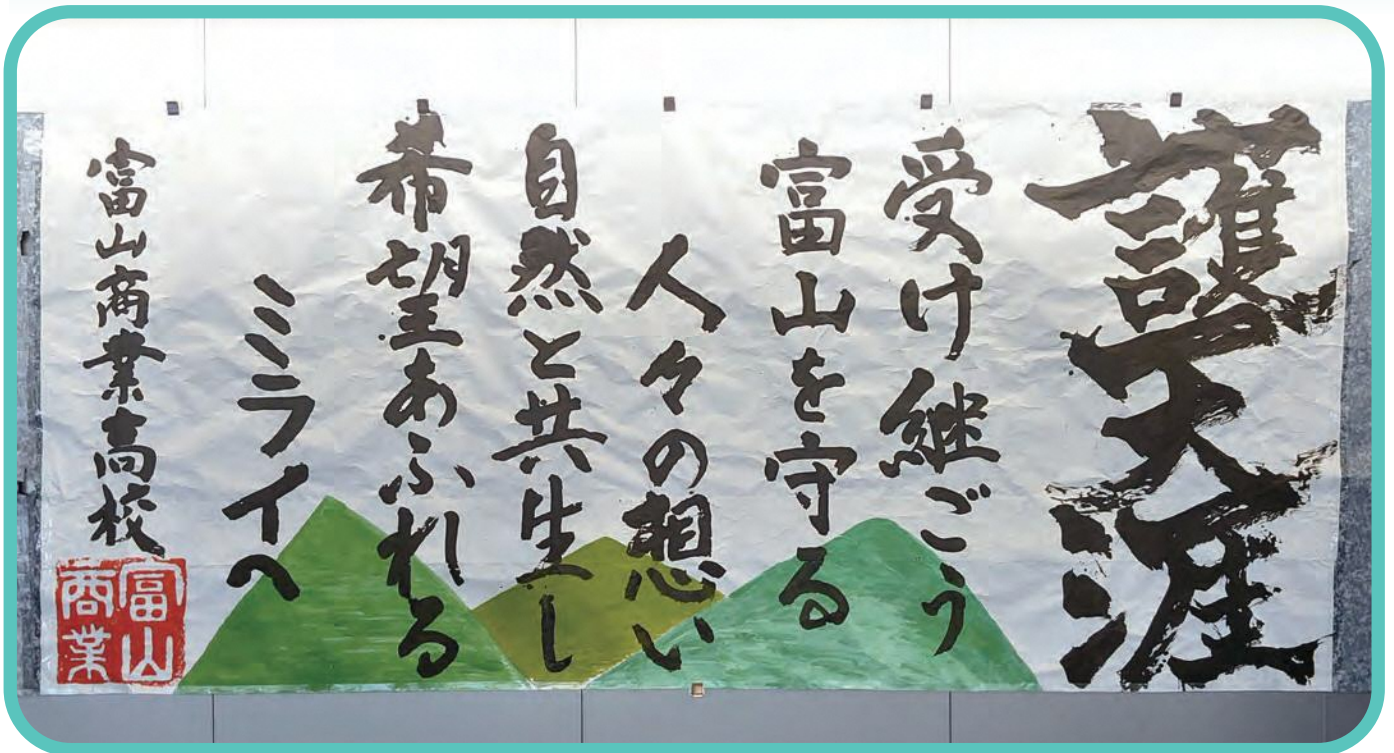 護天涯
受け継ごう
富山を守る
人々の想い
自然と共生し
希望あふれる
ミライへ
富山商業高校
富山
商業